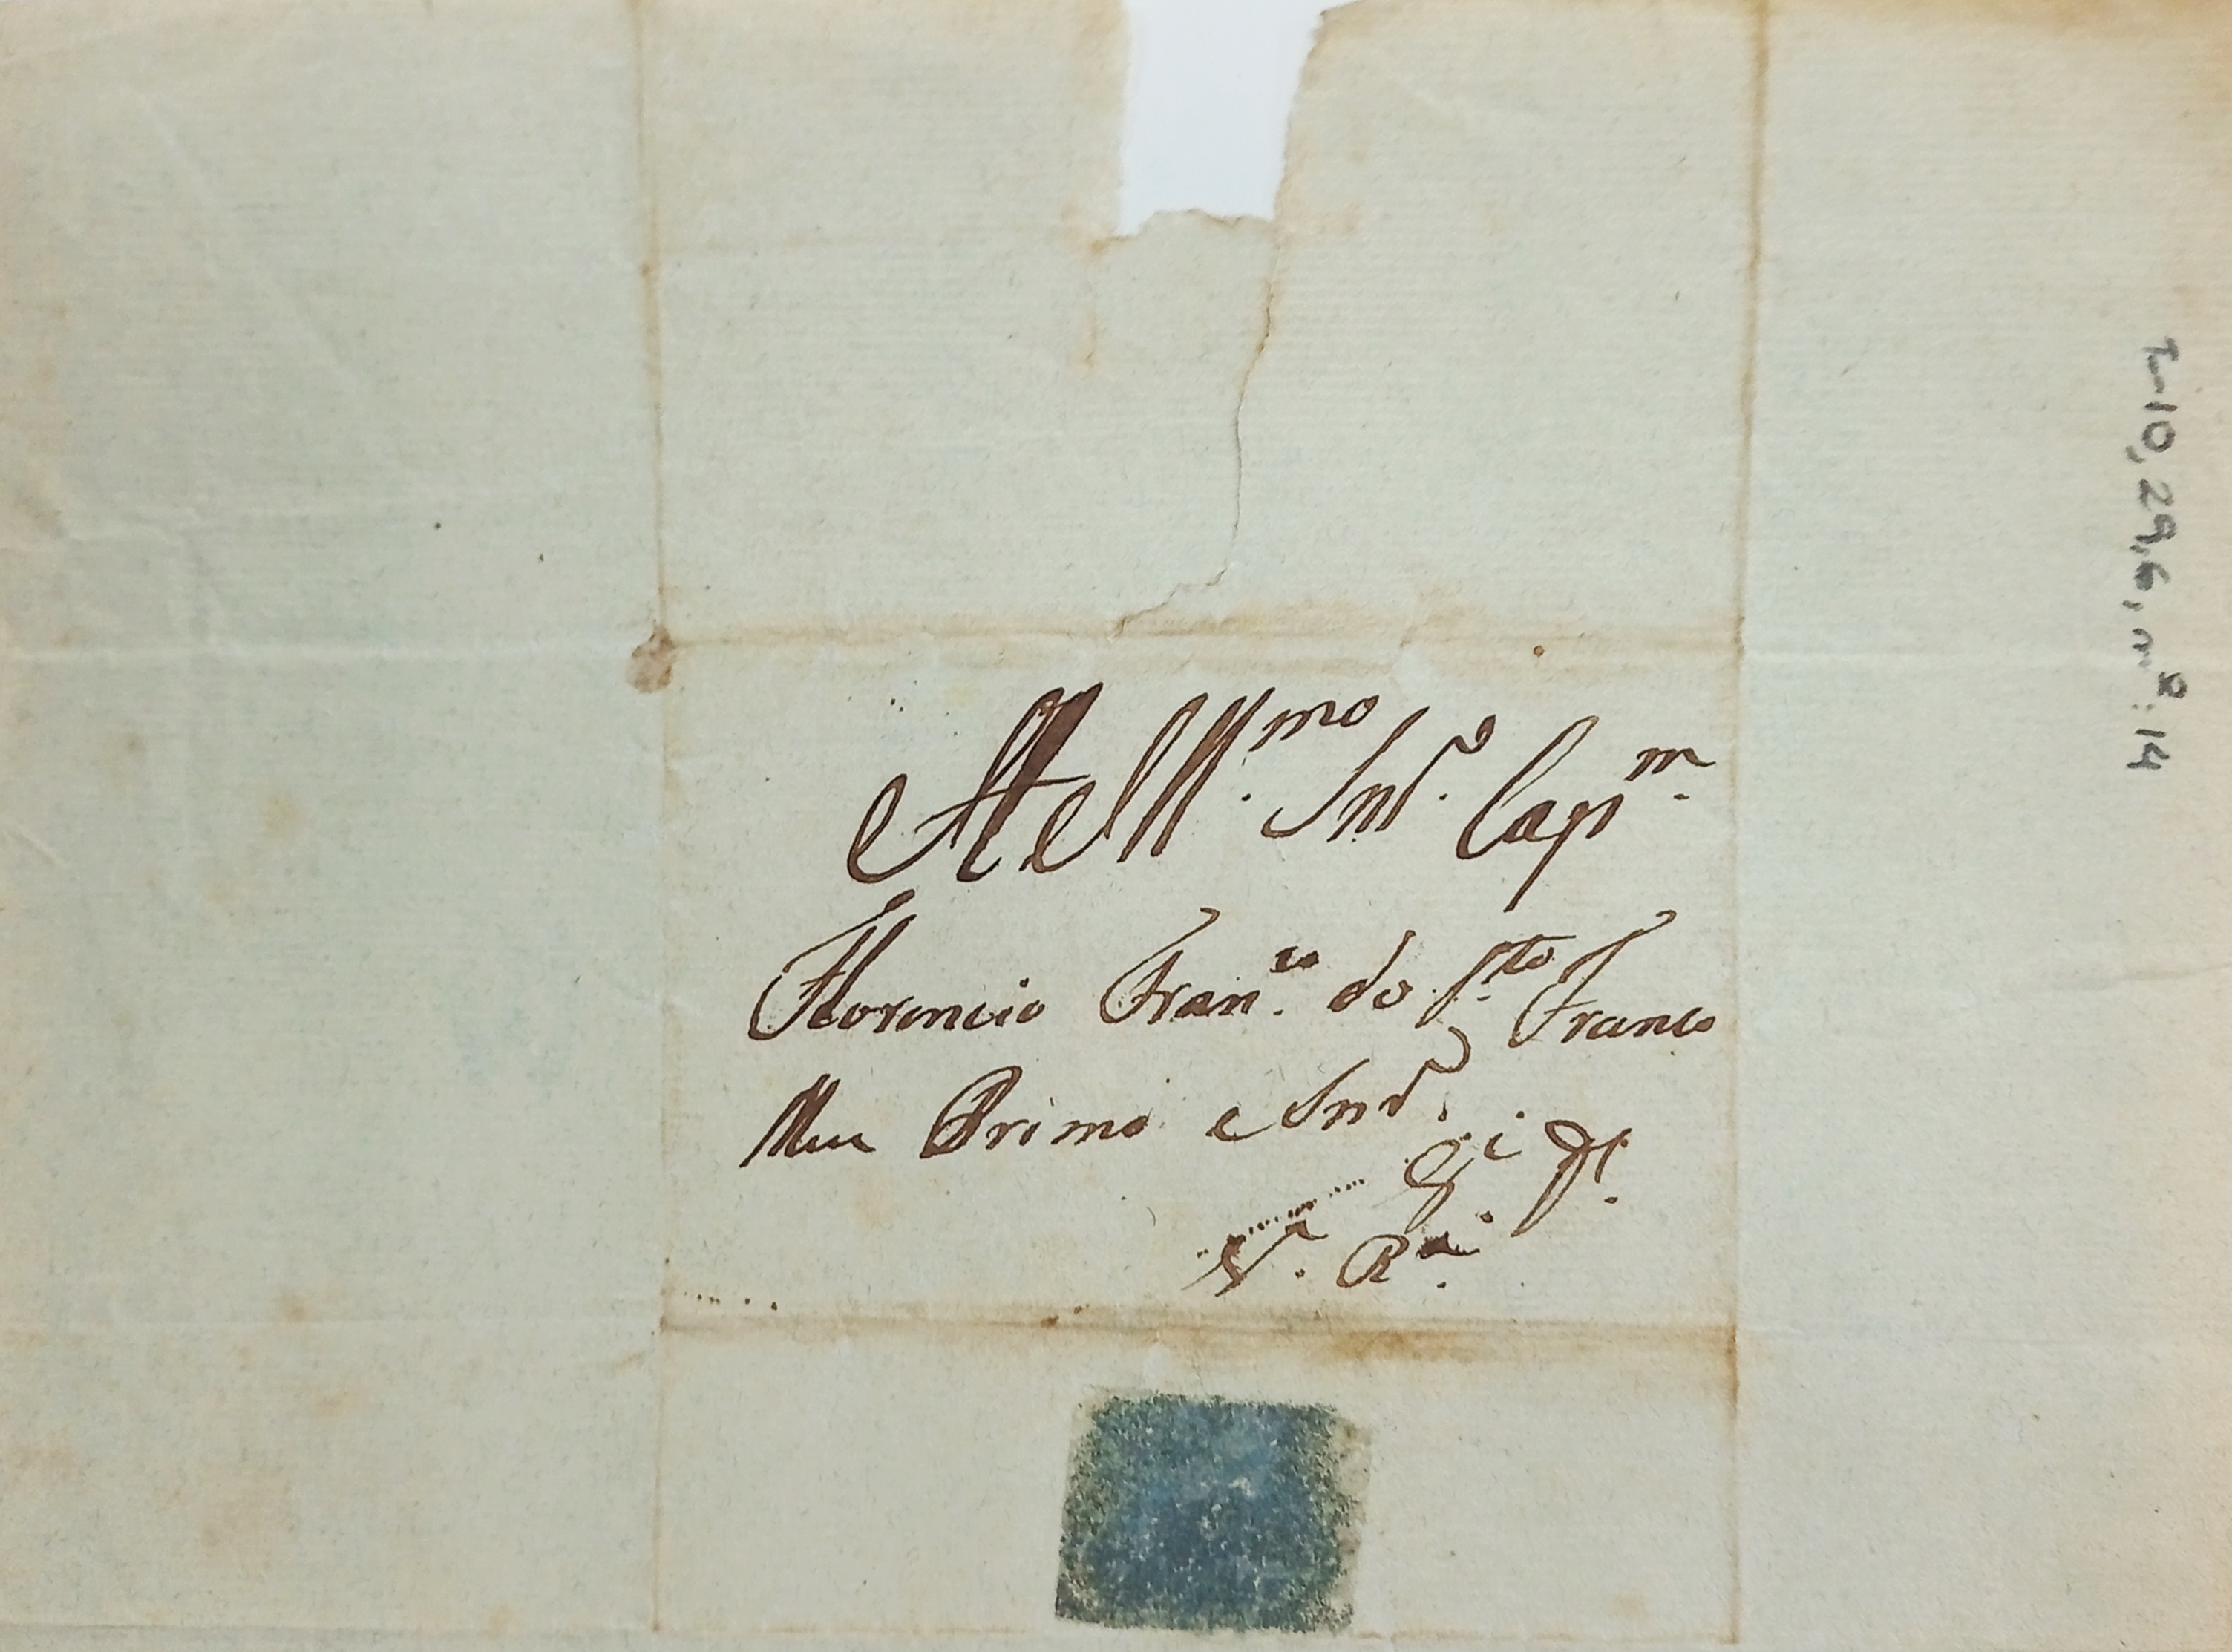 Ao Illmo. Snr. Capm.
Florencio Franco. do Sto. Franco
Meu Primo e Snr.
Ge. De.
Va. Ra.
I-10, 29, 6, nº: 14